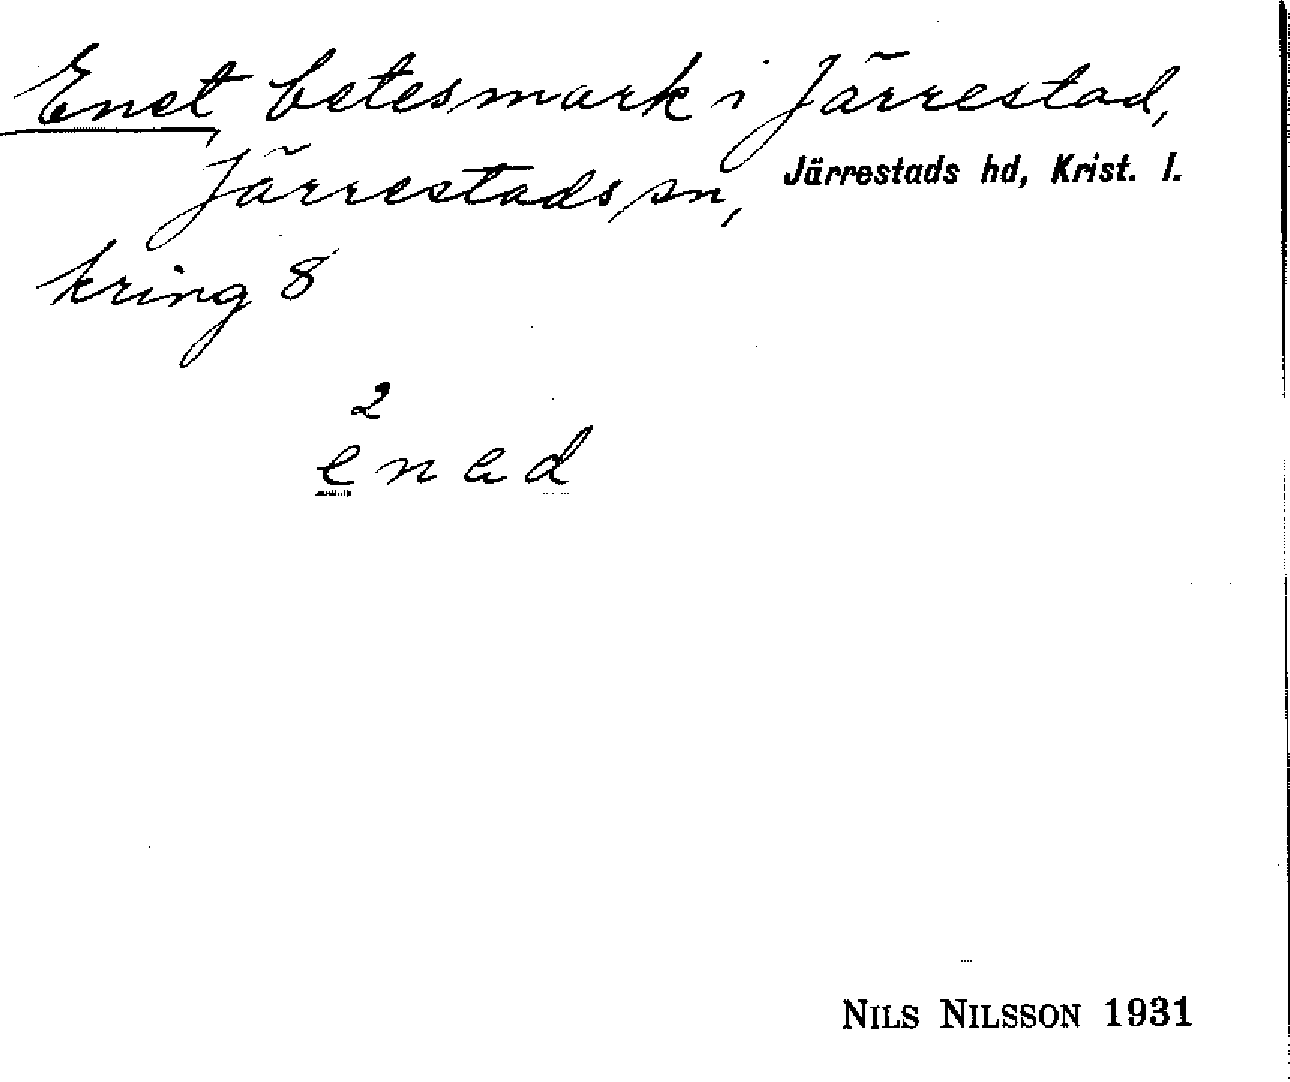 Enet, betesmark i Järrestad,
Järrestads sn, Järrestads hd, Krist. l.
kring 8
2
enad
NILS NILSSON 1931